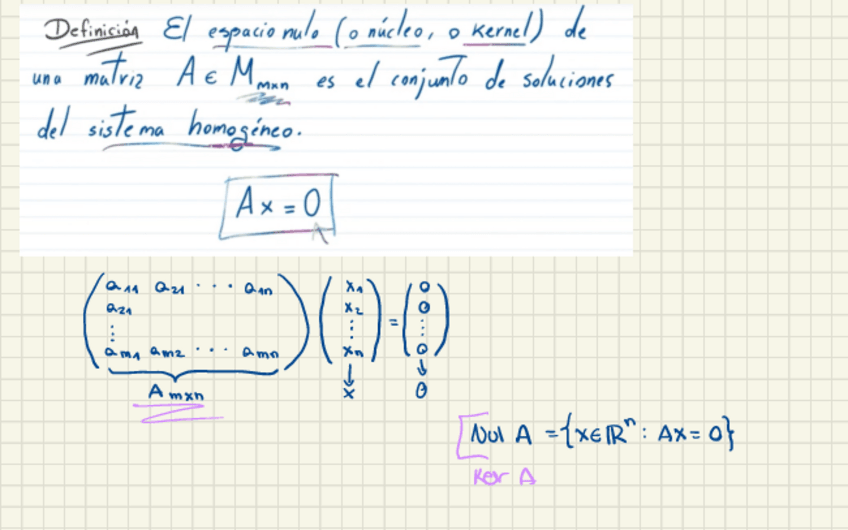 Definición El espacio nulo (o núcleo, o Kernel) de
una matriz A ∈ M_{m×n} es el conjunto de soluciones
del sistema homogéneo.
Ax = 0
a_{11} a_{21} · · · a_{1n} x_1 0
a_{21} x_2 0
⋮ ⋮ = ⋮
a_{m1} a_{m2} · · · a_{mn} x_n 0
A_{m×n} ↓ x ↓ 0
Nul A = {x ∈ ℝ^n : Ax = 0}
Ker A